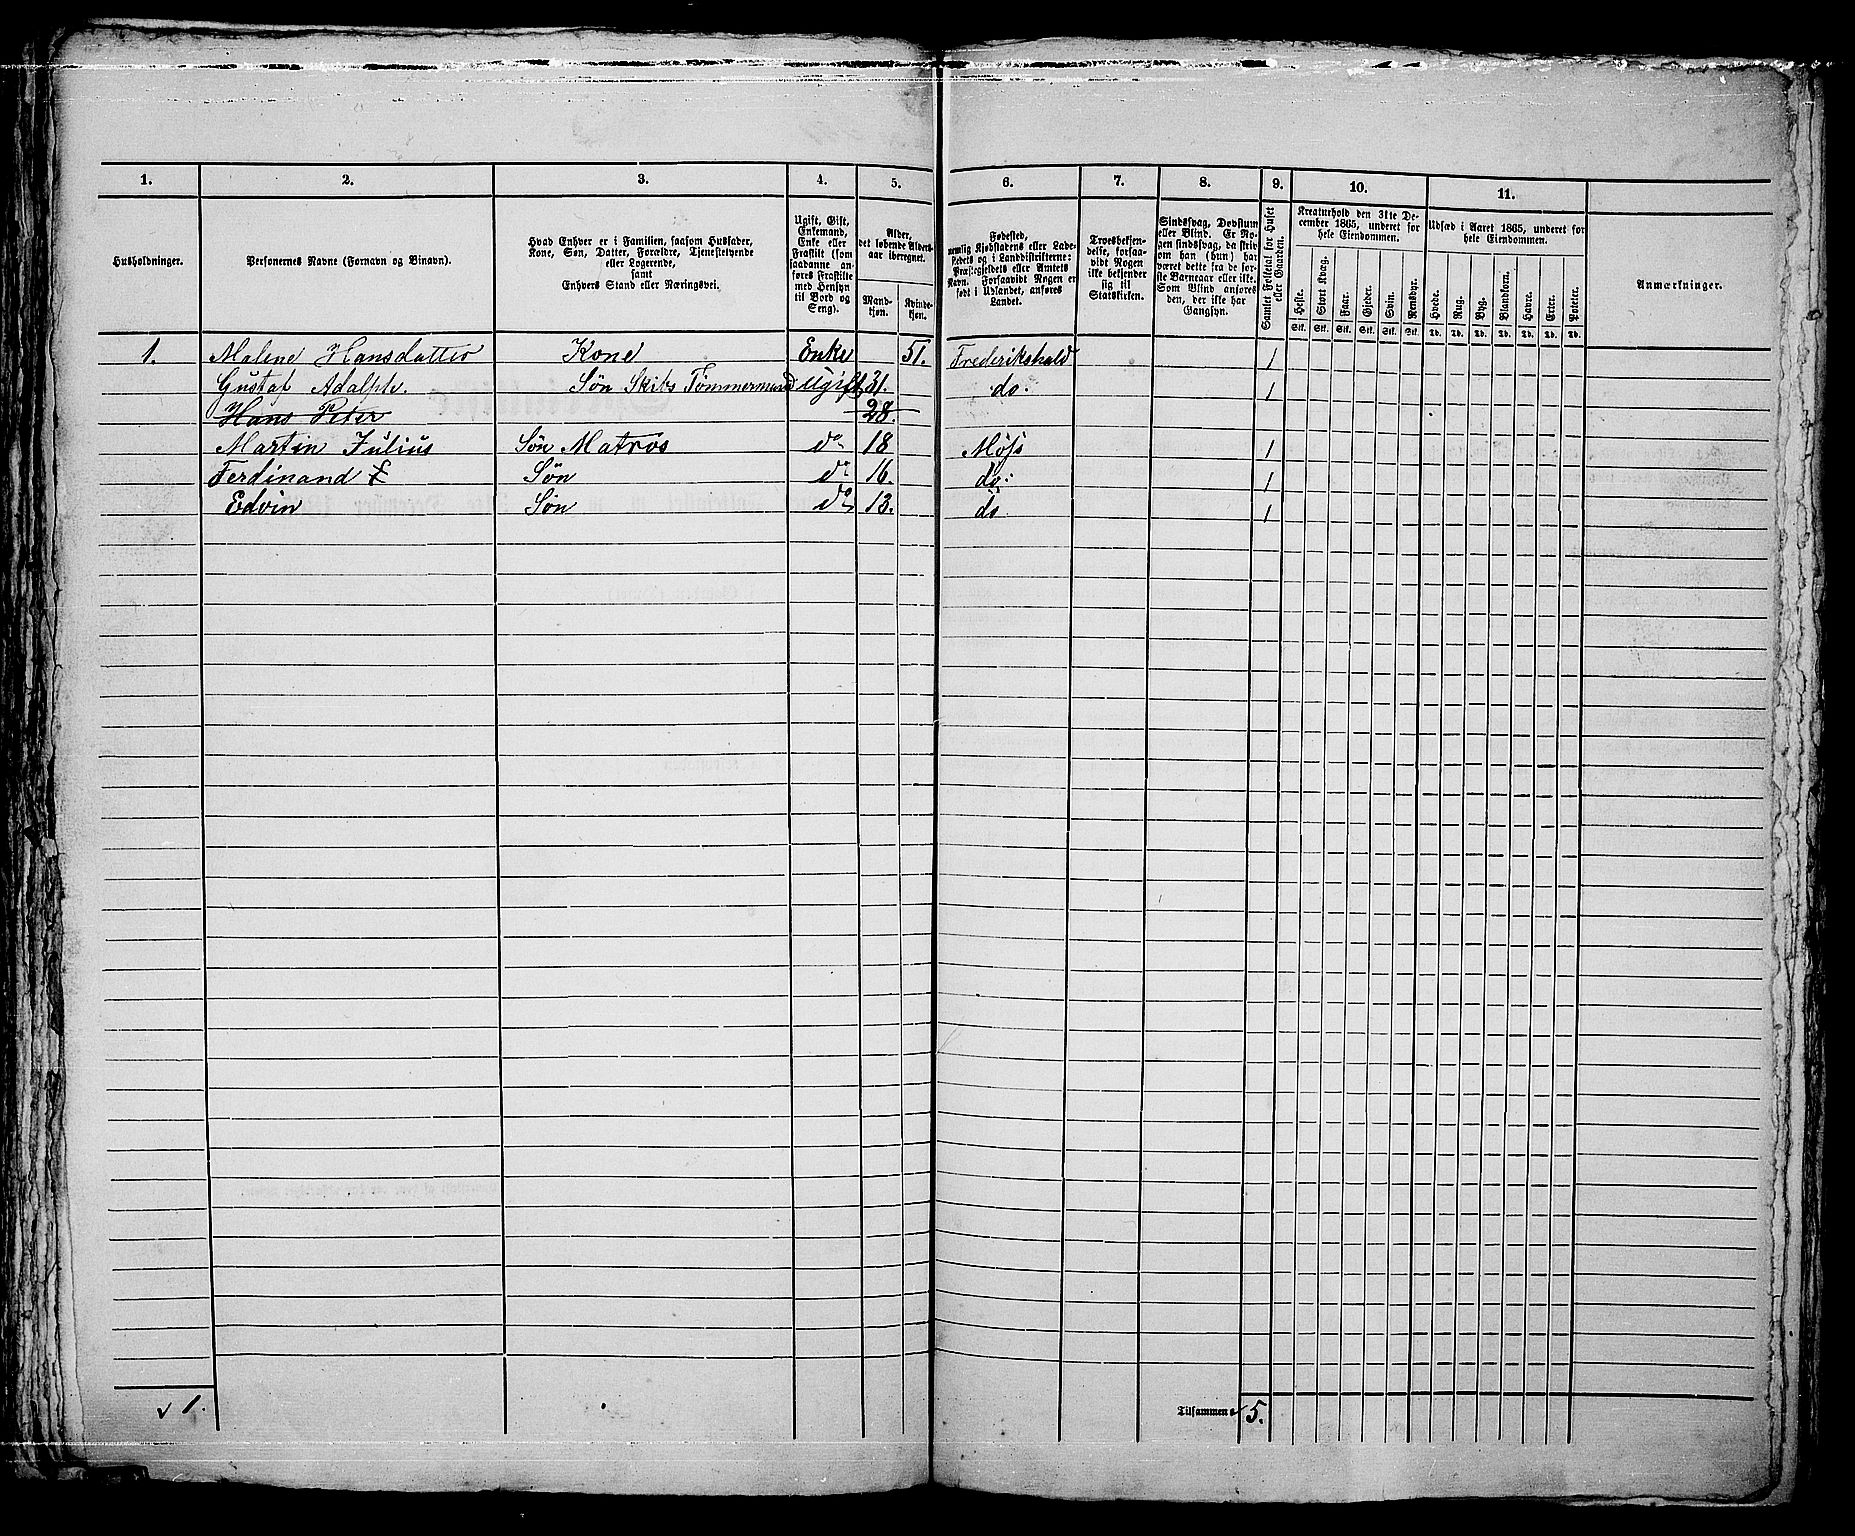 1. 2. 3. 4. 5. 6. 7. 8. 9. 10. 11.
Husholdninger.
Personernes Navne (Fornavn og Binavn).
Hvad Enhver er i Familien, saasom Husfader,
Kone, Søn, Datter, Forældre, Tjenestetyende
eller Logerende,
samt
Enhvers Stand eller Næringsvei.
Ugift, Gift,
Enkemand,
Enke eller
Fraskilt (som
saadanne an-
føres Fraskilte
med Hensyn
til Bord og
Seng).
Alder,
det løbende Alders-
aar iberegnet.
Mand-
kjøn.
Kvinde-
kjøn.
Fødested,
nemlig Kjøbstadens eller Lade-
stedets og i Landdistrikterne:
Præstegjeldets eller Amtets
Navn. Forsaavidt Nogen er
født i Udlandet, anføres
Landet.
Troesbekjen-
delse, forsaa-
vidt Nogen
ikke bekjender
sig til
Statskirken.
Sindssvag, Døvstum
eller Blind. Er No-
gen sindssvag, da skriv
om han (hun) har
været dette fra de før-
ste Barneaar eller ikke.
Som Blind anføres
den, der ikke har
Gangsyn.
Samlet Folketal for Huset
eller Gaarden.
Kreaturhold den 31te De-
cember 1865, underet for
hele Eiendommen.
Heste. Stort Kvæg. Faar. Gjeder. Svin. Rensdyr.
Stk. Stk. Stk. Stk. Stk. Stk.
Udsæd i Aaret 1865, underet for
hele Eiendommen.
Hvede. Rug. Byg. Blandkorn. Havre. Erter. Poteter.
Td. Td. Td. Td. Td. Td. Td.
Anmærkninger.
1. Malene Hansdatter Kone Enke 51. Frederikshald 1
Gustaf Adolph. Søn Skibs Tømmermand ugift 31. do. 1
Hans Peter 28.
Martin Julius Søn Matros do 18 Møss 1
Ferdinand Søn do 16. do. 1
Edvin Søn do 13. do 1
1. Tilsammen 5.